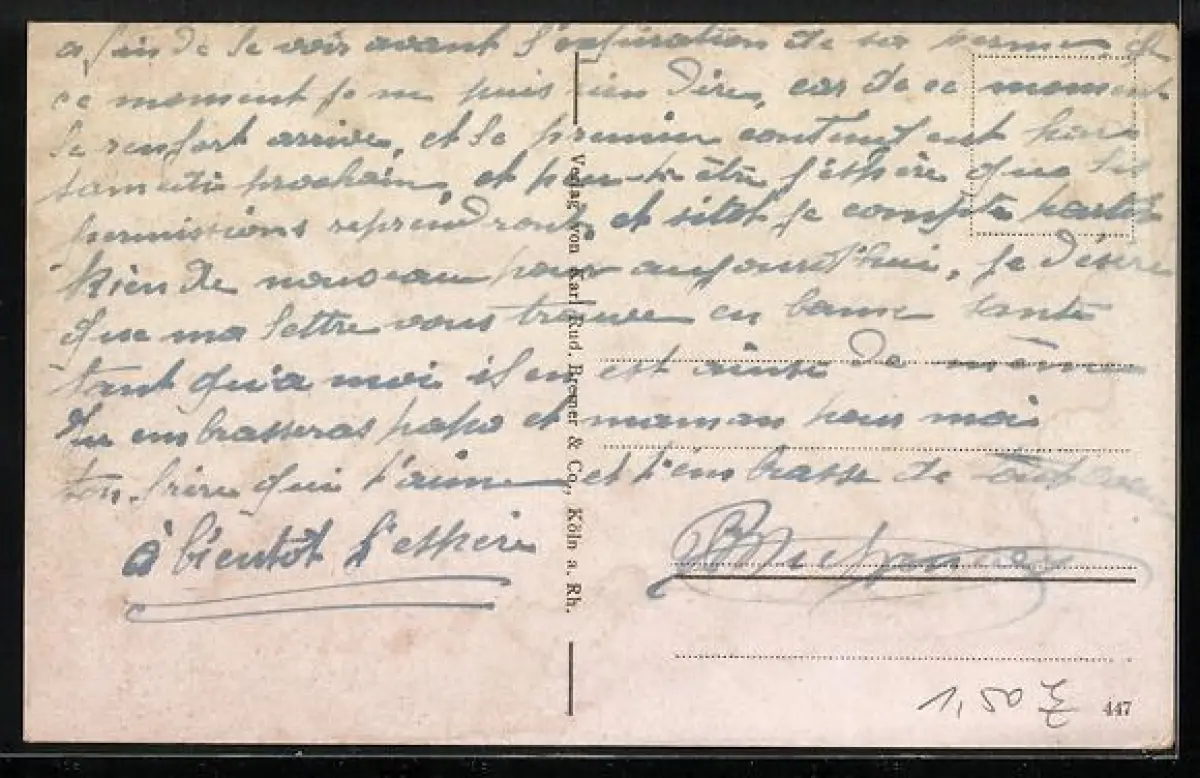 afin de le voir avant l'expiration de sa perme, et
ce moment je ne puis rien dire, car de ce moment
le renfort arrive, et le premier contingent
samedi prochain, et peut-être j'espère que les
permissions reprendront, et sitôt je compte
Rien de nouveau pour aujourd'hui, je désire
que ma lettre vous trouve en bonne santé
tant qu'a moi il en est ainsi de même
Tu embrasseras papa et maman pour moi
ton frère qui t'aime et t'embrasse de tout
à bientôt j'espère
Verlag von Karl Rud. Bremer & Co., Köln a. Rh.
1,50
447